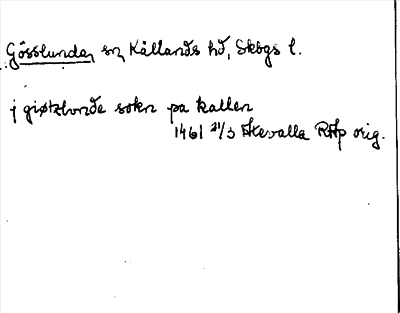 Gösslunda, sn, Kållands hd, Skbgs l.
j giøtzlunde sokn pa kallen
1461 21/3 Skevalla RAp orig.